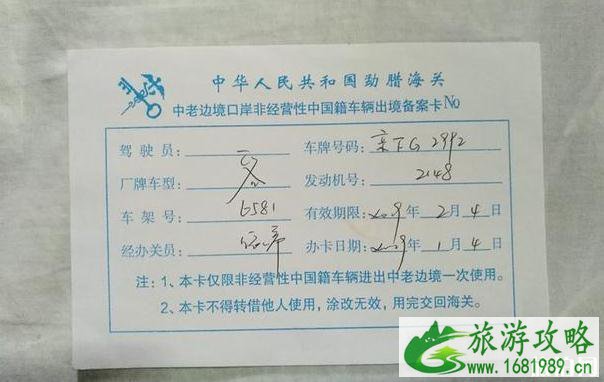 中华人民共和国勐腊海关
中老边境口岸非经营性中国籍车辆出境备案卡 No
驾驶员： 车牌号码：京FG2992
厂牌车型： 发动机号：2148
车架号：6581 有效期限：2019年2月4日
经办关员： 办卡日期：2019年1月4日
注：1、本卡仅限非经营性中国籍车辆进出中老边境一次使用。
2、本卡不得转借他人使用，涂改无效，用完交回海关。
旅游攻略
www.1681989.cn